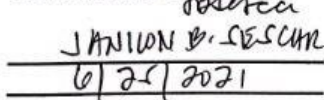 JANILON B. SESCAR
6/25/2021